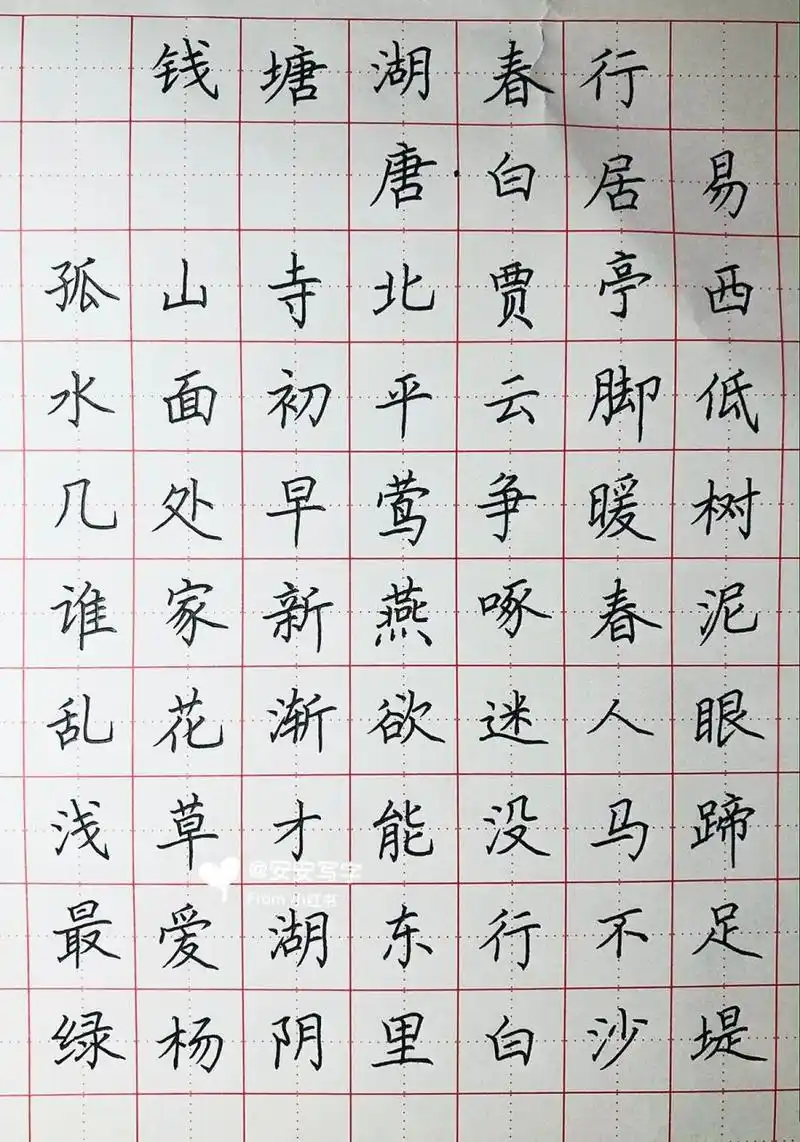 钱塘湖春行
唐·白居易
孤山寺北贾亭西
水面初平云脚低
几处早莺争暖树
谁家新燕啄春泥
乱花渐欲迷人眼
浅草才能没马蹄
@安安写字
From 小红书
最爱湖东行不足
绿杨阴里白沙堤